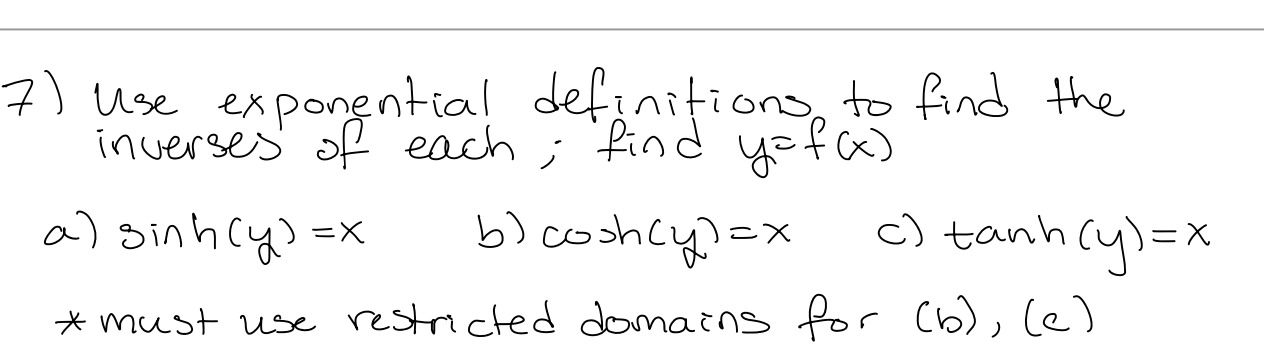 7) Use exponential definitions to find the
inverses of each ; find y=f(x)
a) sinh(y) = x b) cosh(y) = x c) tanh(y) = x
* must use restricted domains for (b), (c)